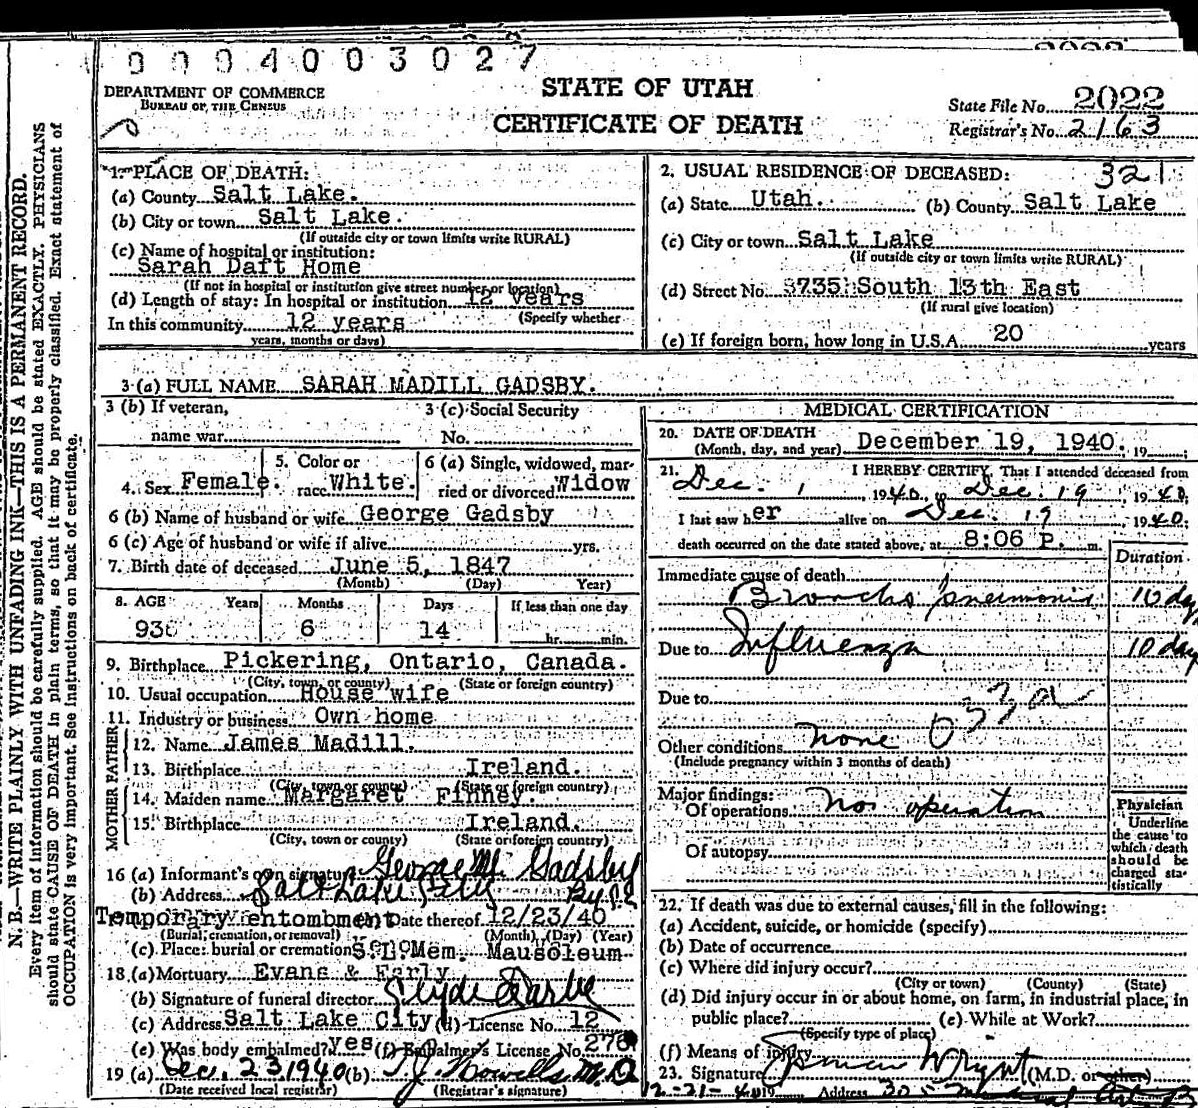 0004003027
DEPARTMENT OF COMMERCE
BUREAU OF THE CENSUS
STATE OF UTAH
CERTIFICATE OF DEATH
State File No. 2022
Registrar's No. 2163
1. PLACE OF DEATH:
(a) County Salt Lake.
(b) City or town Salt Lake.
(If outside city or town limits write RURAL)
(c) Name of hospital or institution:
Sarah Daft Home
(If not in hospital or institution give street number or location)
(d) Length of stay: In hospital or institution 12 years
(Specify whether
In this community 12 years
years, months or days)
2. USUAL RESIDENCE OF DECEASED: 321
(a) State Utah. (b) County Salt Lake
(c) City or town Salt Lake
(If outside city or town limits write RURAL)
(d) Street No. 3735 South 13th East
(If rural give location)
(e) If foreign born, how long in U.S.A. 20 years
3 (a) FULL NAME SARAH MADILL GADSBY.
3 (b) If veteran,
name war
3 (c) Social Security
No.
4. Sex Female.
5. Color or
race White.
6 (a) Single, widowed, mar-
ried or divorced Widow
6 (b) Name of husband or wife George Gadsby
6 (c) Age of husband or wife if alive yrs.
7. Birth date of deceased June 5, 1847
(Month) (Day) Year)
8. AGE Years Months Days If less than one day
93 6 14 hr. min.
9. Birthplace Pickering, Ontario, Canada.
(City, town, or county) (State or foreign country)
10. Usual occupation House wife
11. Industry or business Own home
FATHER
12. Name James Madill.
13. Birthplace Ireland.
(City, town or county) (State or foreign country)
MOTHER
14. Maiden name Margaret Finney.
15. Birthplace Ireland.
(City, town or county) (State or foreign country)
16 (a) Informant's own signature George M. Gadsby
(b) Address Salt Lake City By
Temporary entombment (b) Date thereof 12/23/40
(Burial, cremation, or removal) (Month) (Day) (Year)
(c) Place: burial or cremation S. L. Mem. Mausoleum
18 (a) Mortuary Evans & Early
(b) Signature of funeral director Clyde
(c) Address Salt Lake City (d) License No. 12
(e) Was body embalmed? yes (f) Embalmer's License No. 276
19 (a) Dec. 23 1940 (b) T. J. Howells M.D.
(Date received local registrar) (Registrar's signature)
MEDICAL CERTIFICATION
20. DATE OF DEATH
(Month, day, and year) December 19, 1940. 19
21. I HEREBY CERTIFY, That I attended deceased from
Dec. 1, 1940, to Dec. 19, 1940,
I last saw her alive on Dec. 19 1940;
death occurred on the date stated above, at 8:06 P. m.
Duration
Immediate cause of death
Broncho pneumonia 10 days
Due to Influenza 10 days
Due to
033a
Other conditions none
(Include pregnancy within 3 months of death)
Major findings:
Of operations No operation
Of autopsy
Physician
Underline
the cause to
which death
should be
charged sta-
tistically
22. If death was due to external causes, fill in the following:
(a) Accident, suicide, or homicide (specify)
(b) Date of occurrence
(c) Where did injury occur?
(City or town) (County) (State)
(d) Did injury occur in or about home, on farm, in industrial place, in
public place? (e) While at Work?
(Specify type of place)
(f) Means of injury
23. Signature Spencer Wright (M.D. or other)
12-21-40 19 Address
N. B.—WRITE PLAINLY WITH UNFADING INK—THIS IS A PERMANENT RECORD.
Every item of information should be carefully supplied. AGE should be stated EXACTLY. PHYSICIANS
should state CAUSE OF DEATH in plain terms, so that it may be properly classified. Exact statement of
OCCUPATION is very important. See instructions on back of certificate.